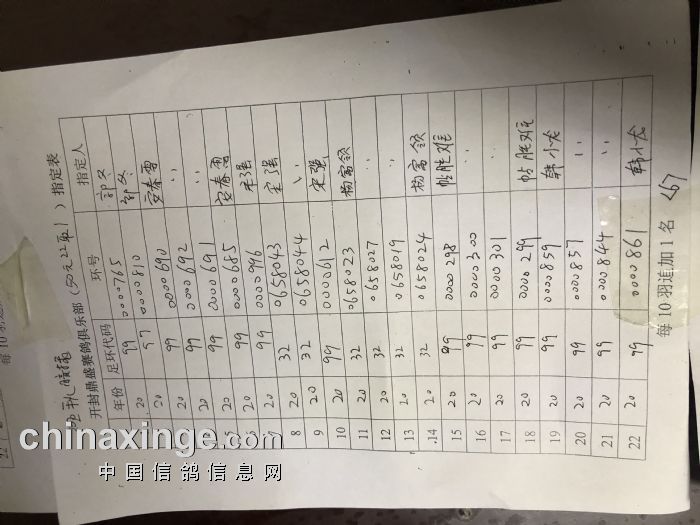 开封鼎盛赛鸽俱乐部(50元22取1)指定表
年份 足环代码 环号 指定人
20 99 0000765 郭义
20 99 0000810 郭义
20 99 0000690 安春雨
20 99 0000692 〃
20 99 0000691 〃
20 99 0000685 安春雨
20 99 0000996 宋强
8 20 32 0658043 宋强
9 20 32 0658044 〃
10 20 99 0000612 宋强
11 20 32 0658023 杨富领
12 20 32 0658027 〃
13 20 32 0658019 〃
14 20 32 0658024 杨富领
15 20 99 0000298 帖胜难
16 20 99 0000300 〃
17 20 99 0000301 〃
18 20 99 0000299 帖胜难
19 20 99 0000859 韩小龙
20 20 99 0000857 〃
21 20 99 0000844 〃
22 20 99 0000861 韩小龙
每10羽追加1名
每10羽追
chinaxinge.com
中国信鸽信息网